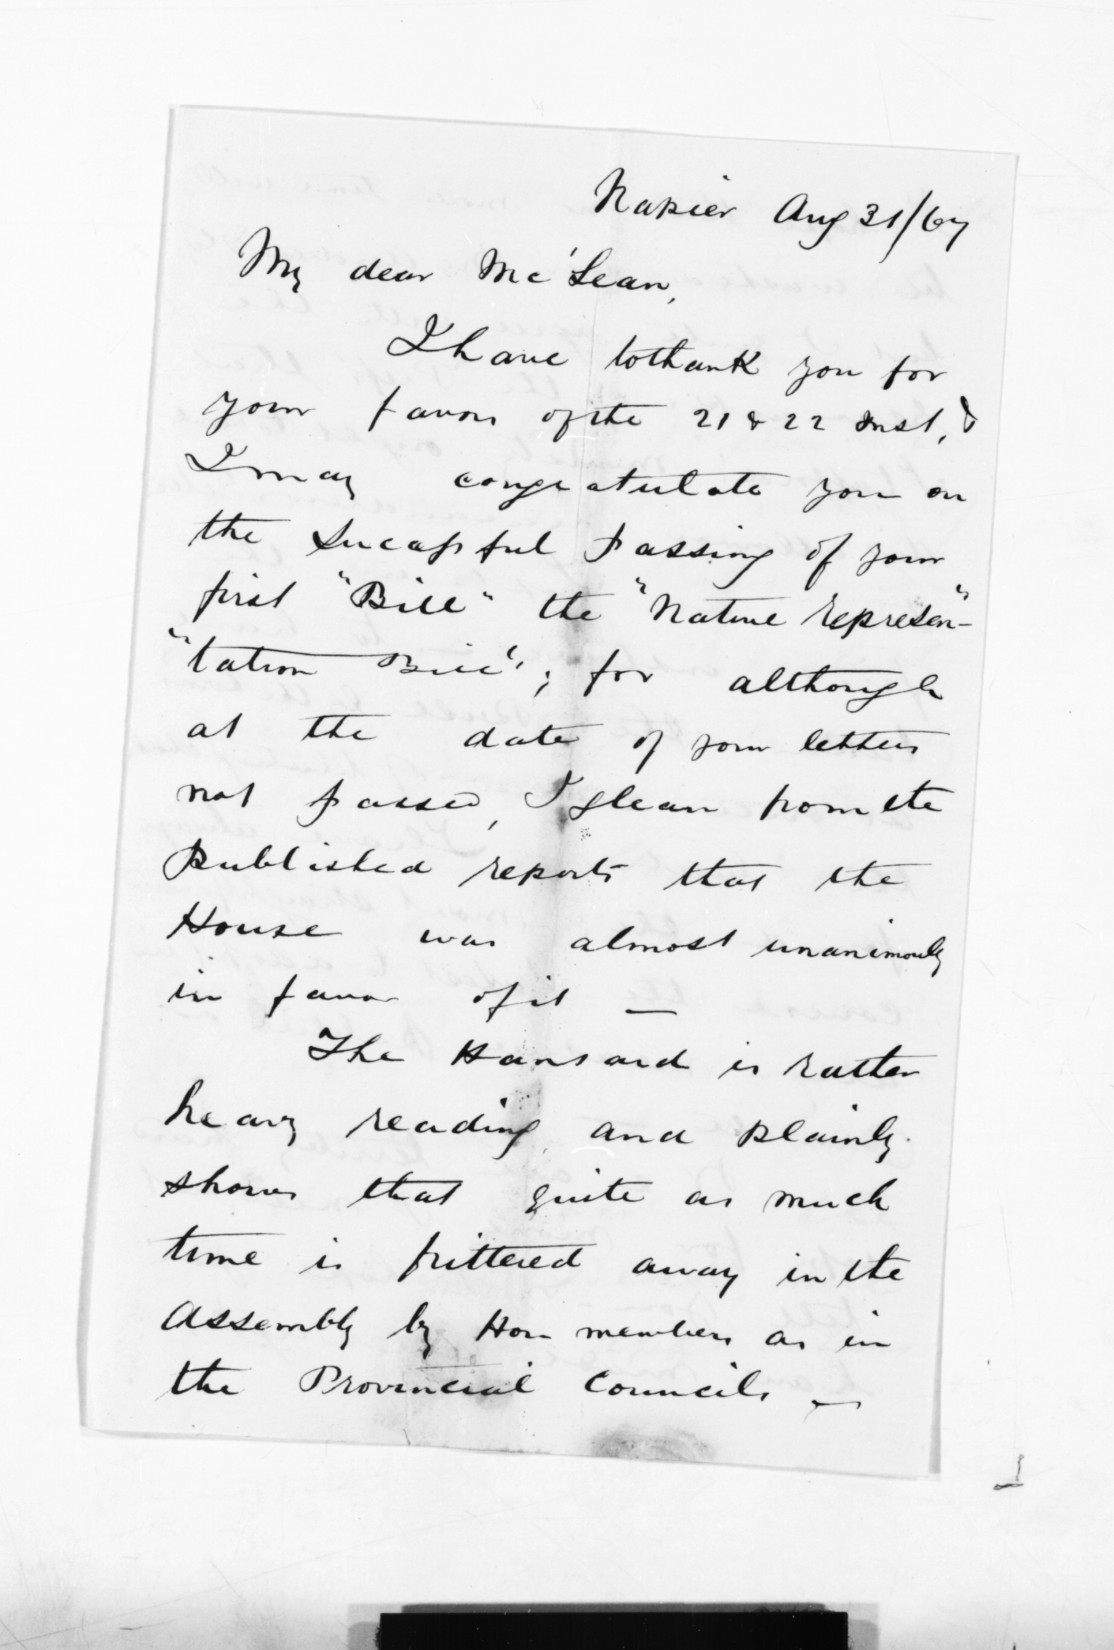 Napier Aug 31/67
My dear McLean,
I have to thank you for
your favors of the 21 & 22 Inst, &
I may congratulate you on
the Successful passing of your
first "Bill" the "Native represen-"
"tation Bill"; for although
at the date of your letters
not passed, I glean from the
published reports that the
House was almost unanimously
in favor of it —
The Hansard is rather
heavy reading and plainly
shows that quite as much
time is frittered away in the
Assembly by Hon members as in
the Provincial Councils —